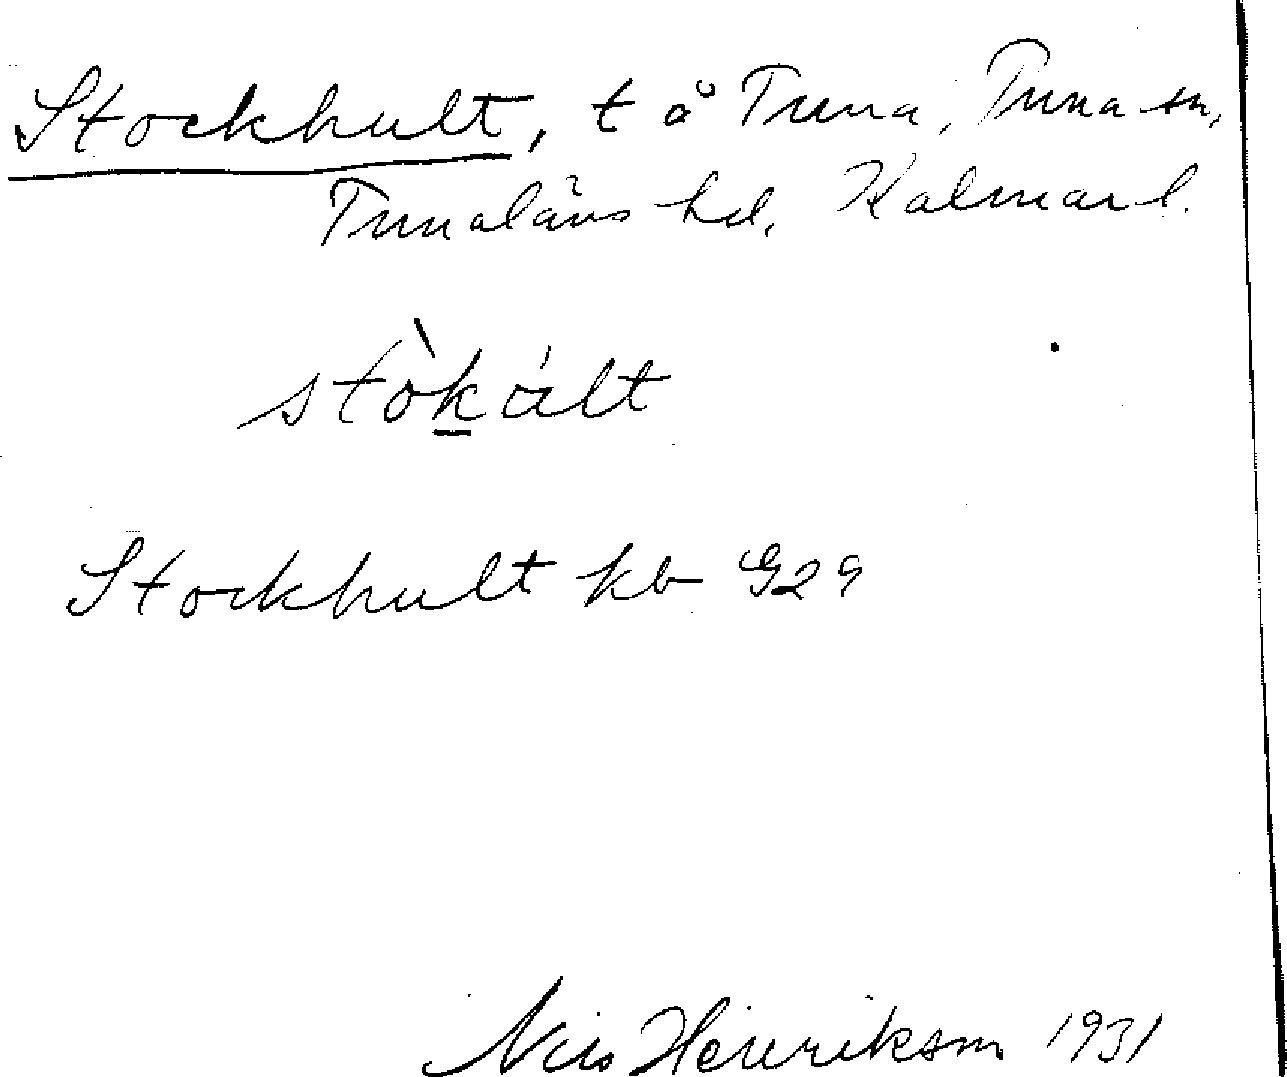 Stockhult, t å Tuna, Tuna sn,
Tunaläns hd, Kalmar l.
stòkált
Stockhult kb G29
Nils Henriksm 1931